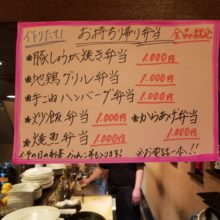 作りたて! お持ち帰り弁当 全品税込
豚しょうが焼き弁当 1.000円
地鶏グリル弁当 1.000円
手ごねハンバーグ弁当 1.000円
炒飯弁当 1.000円 からあげ弁当
焼魚弁当 1.000円 1.000円
※お電話一本!!